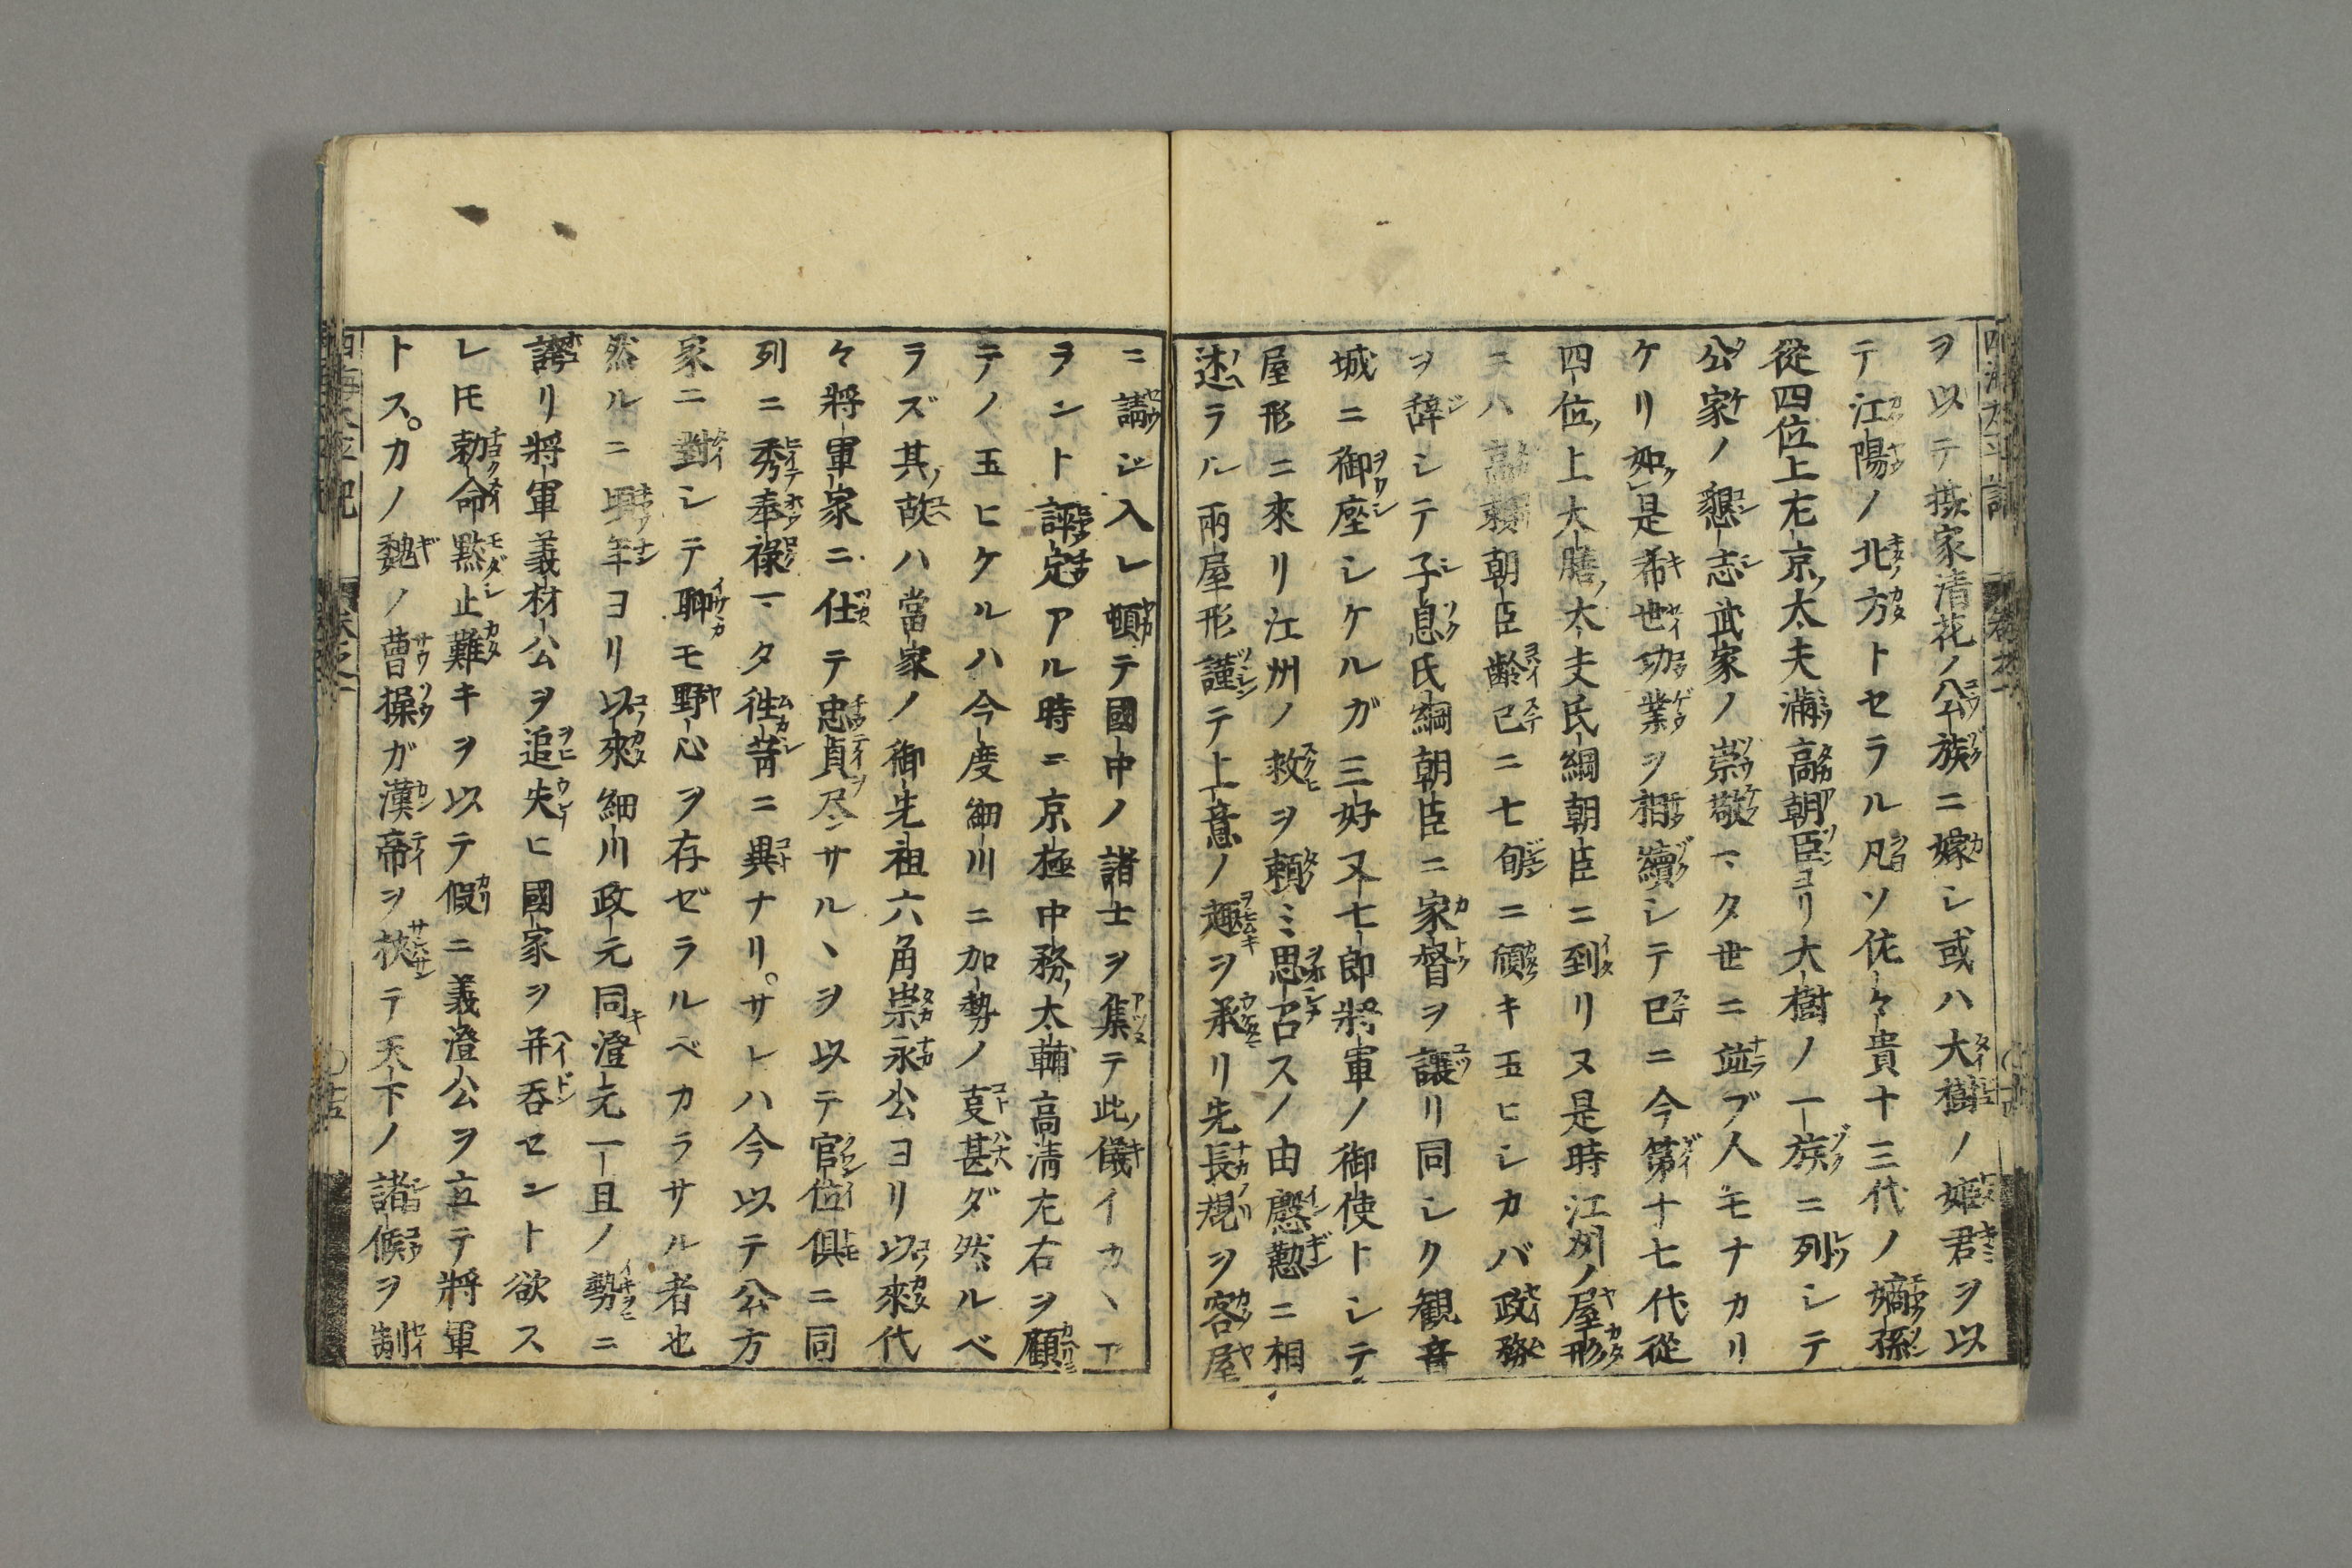 ヲ以テ摂家清花ノ公族ニ嫁シ或ハ大樹ノ姫君ヲ以
テ江陽ノ北方トセラル凡ソ佐々貴十三代ノ嫡孫
從四位上左京太夫満高朝臣ヨリ大樹ノ一族ニ列シテ
公家ノ懇志武家ノ崇敬一タ世ニ並ブ人モナカリ
ケリ如是希世功業ヲ相續シテ已ニ今第十七代從
四位上大膳太夫氏綱朝臣ニ到リヌ是時江州ノ屋形
ニハ高頼朝臣齢已ニ七旬ニ傾キ玉ヒシカバ政務
ヲ辞シテ子息氏綱朝臣ニ家督ヲ讓リ同シク観音
城ニ御座シケルガ三好又七郎將軍ノ御使トシテ
屋形ニ來リ江州ノ救ヲ頼ミ思召スノ由慇懃ニ相
述ラル兩屋形謹テ上意ノ趣ヲ承リ先長規ヲ客屋
ニ請ジ入レ頓テ國中ノ諸士ヲ集テ此儀イカヽア
ラント評定アル時ニ京極中務太輔高清左右ヲ顧
テノ玉ヒケルハ今度細川ニ加勢ノ叓甚ダ然ルベ
ラズ其故ハ當家ノ御先祖六角崇永公ヨリ以來代
々將軍家ニ仕テ忠貞尽サルヽヲ以テ官位倶ニ同
列ニ秀奉禄一タ徃昔ニ異ナリ。サレハ今以テ公方
家ニ對シテ聊モ野心ヲ存ゼラルベカラサル者也
然ルニ興年ヨリ以來細川政元同澄元一旦ノ勢ニ
誇リ將軍義材公ヲ追失ヒ國家ヲ并呑セント欲ス
レ𪜈勅命黙止難キヲ以テ假ニ義澄公ヲ立テ將軍
トス。カノ魏ノ曹操ガ漢帝ヲ挾テ天下ノ諸候ヲ制